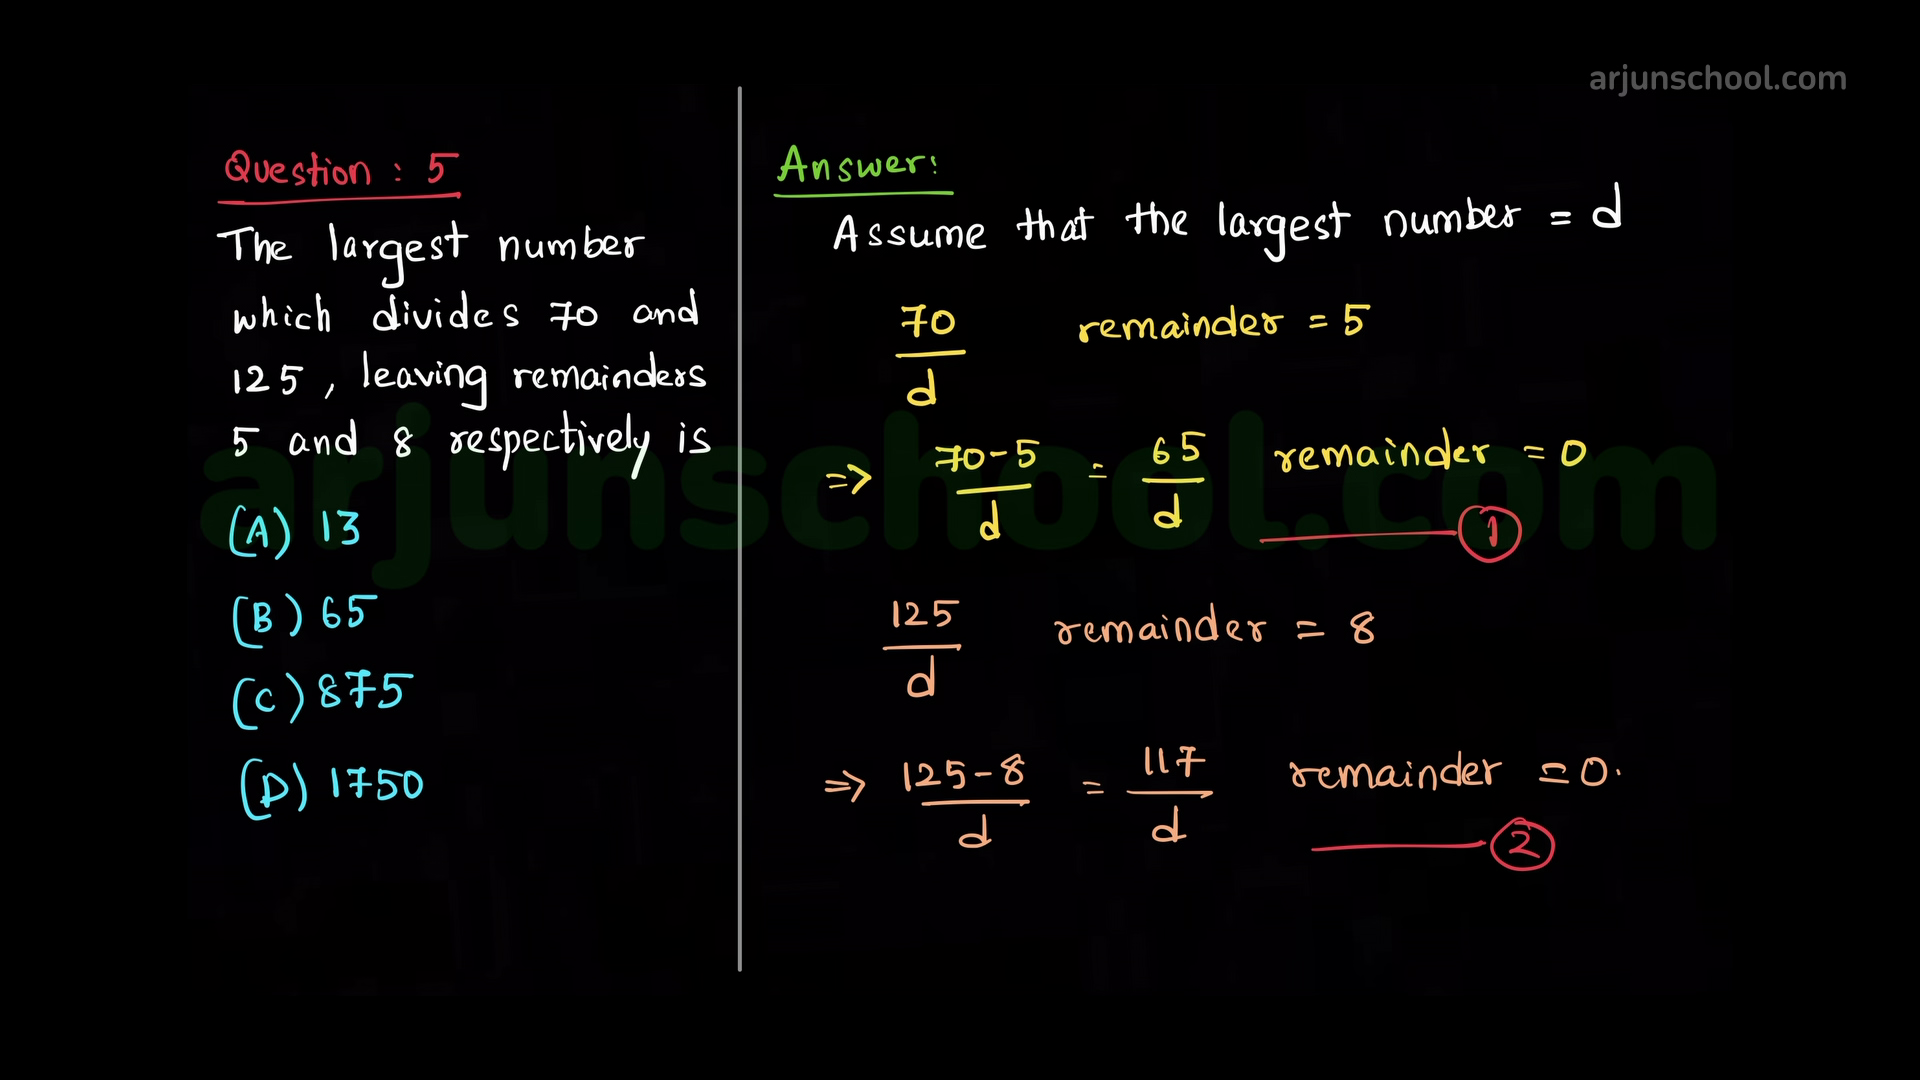 arjunschool.com
Question : 5
The largest number
which divides 70 and
125 , leaving remainders
5 and 8 respectively is
(A) 13
(B) 65
(C) 875
(D) 1750
Answer:
Assume that the largest number = d
70/d remainder = 5
=> 70-5/d = 65/d remainder = 0
1
125/d remainder = 8
=> 125-8/d = 117/d remainder = 0.
2
arjunschool.com